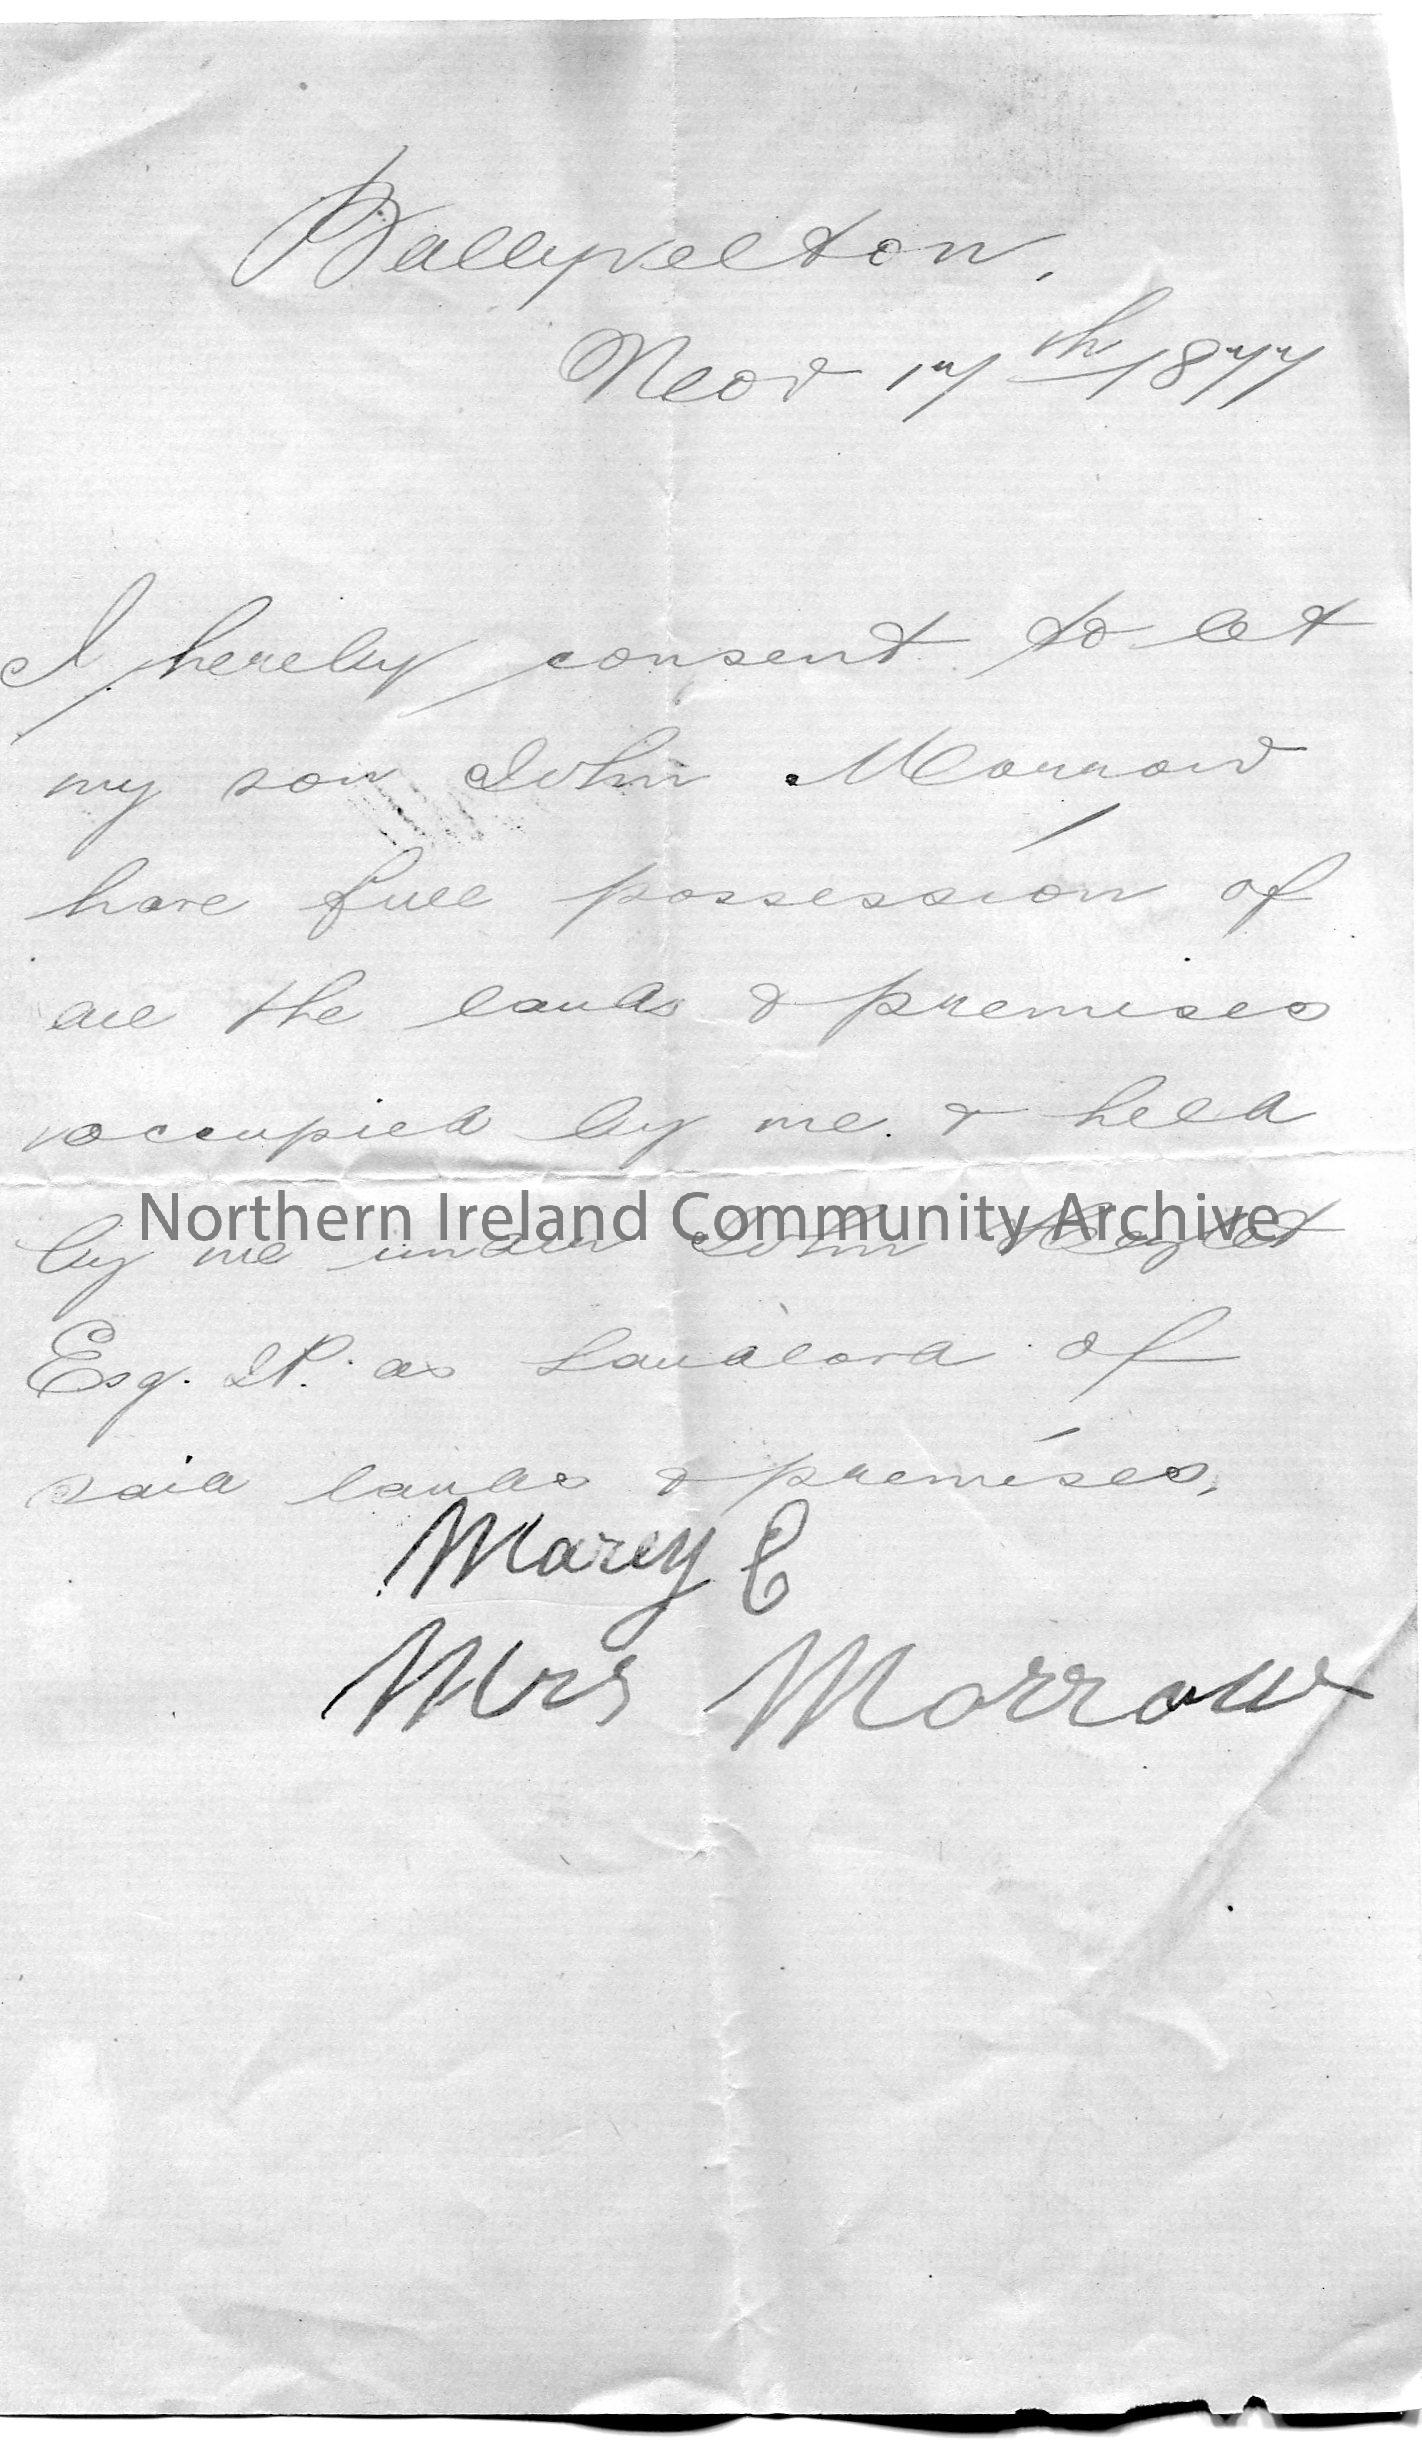 Ballyvelton,
Nov 17th 1877
I hereby consent to let
my son John Morrow
have full possession of
all the lands & premises
occupied by me. & held
by me under John
Northern Ireland Community Archive
Esq. J.P. as Landlord of
said lands & premises,
Marey C
Mrs Morrow